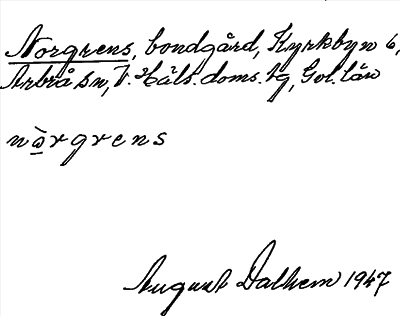 Norgrens, bondgård, Kyrkbyn 6,
Arbrå sn, V. Häls. doms. tg, Gvl. län
nòrgrens
August Dalhem 1947